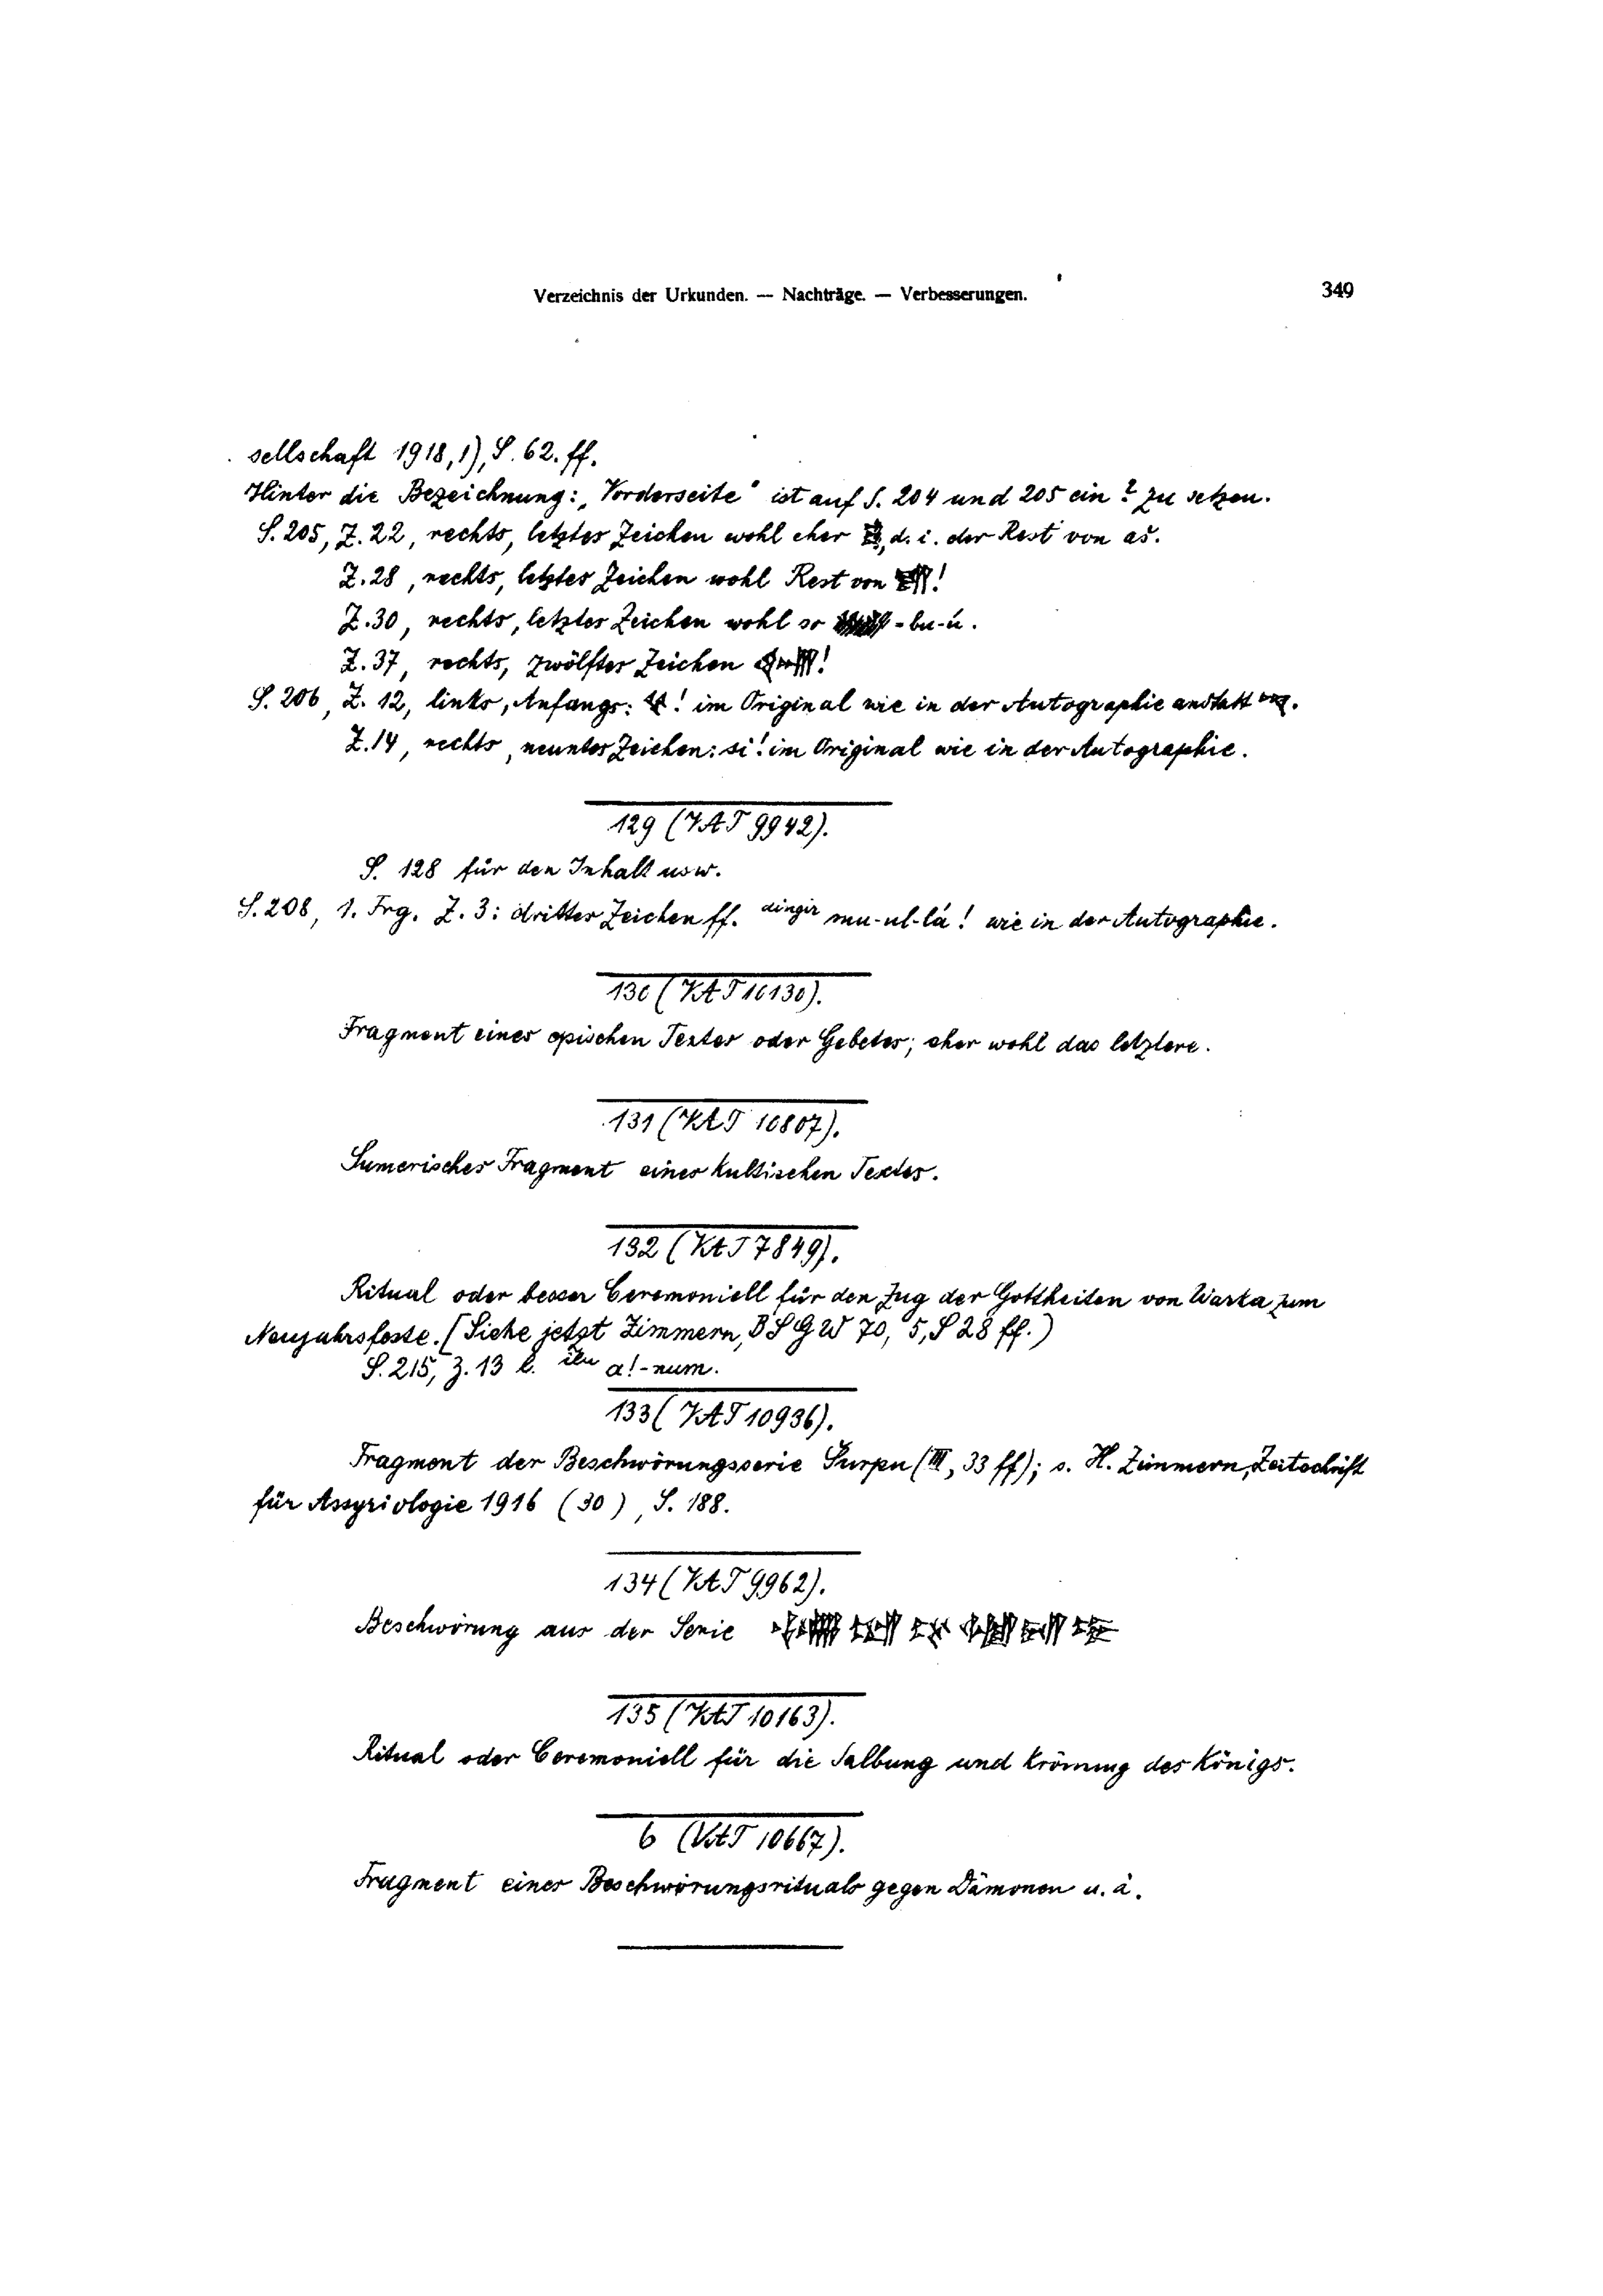 Verzeichnis der Urkunden. — Nachträge. — Verbesserungen. 349
sellschaft 1918,1), S. 62. ff.
Hinter die Bezeichnung: „Vorderseite“ ist auf S. 204 und 205 ein ? zu setzen.
S. 205, Z. 22, rechts, letztes Zeichen wohl eher , d. i. der Rest von aš.
Z. 28, rechts, letztes Zeichen wohl Rest von !
Z. 30, rechts, letztes Zeichen wohl so -bu-ú.
Z. 37, rechts, zwölftes Zeichen !
S. 206, Z. 12, links, Anfangs: ! im Original wie in der Autographie anstatt .
Z. 14, rechts, neuntes Zeichen: si! im Original wie in der Autographie.
129 (VAT 9942).
S. 128 für den Inhalt usw.
S. 208, 1. Frg. Z. 3: drittes Zeichen ff. dingir mu-ul-lá! wie in der Autographie.
130 (VAT 10130).
Fragment eines epischen Textes oder Gebetes; eher wohl das letztere.
131 (VAT 10807).
Sumerisches Fragment eines kultischen Textes.
132 (VAT 7849).
Ritual oder besser Ceremoniell für den Zug der Gottheiten von Warka zum
Neujahrsfeste. [Siehe jetzt Zimmern, BSGW 70, 5, S 28 ff.)
S. 215, Z. 13 l. ilu a!-num.
133 (VAT 10936).
Fragment der Beschwörungsserie Šurpu (III, 33 ff); s. H. Zimmern, Zeitschrift
für Assyriologie 1916 (30), S. 188.
134 (VAT 9962).
Beschwörung aus der Serie
135 (VAT 10163).
Ritual oder Ceremoniell für die Salbung und Krönung des Königs.
6 (VAT 10667).
Fragment eines Beschwörungsrituals gegen Dämonen u. ä.